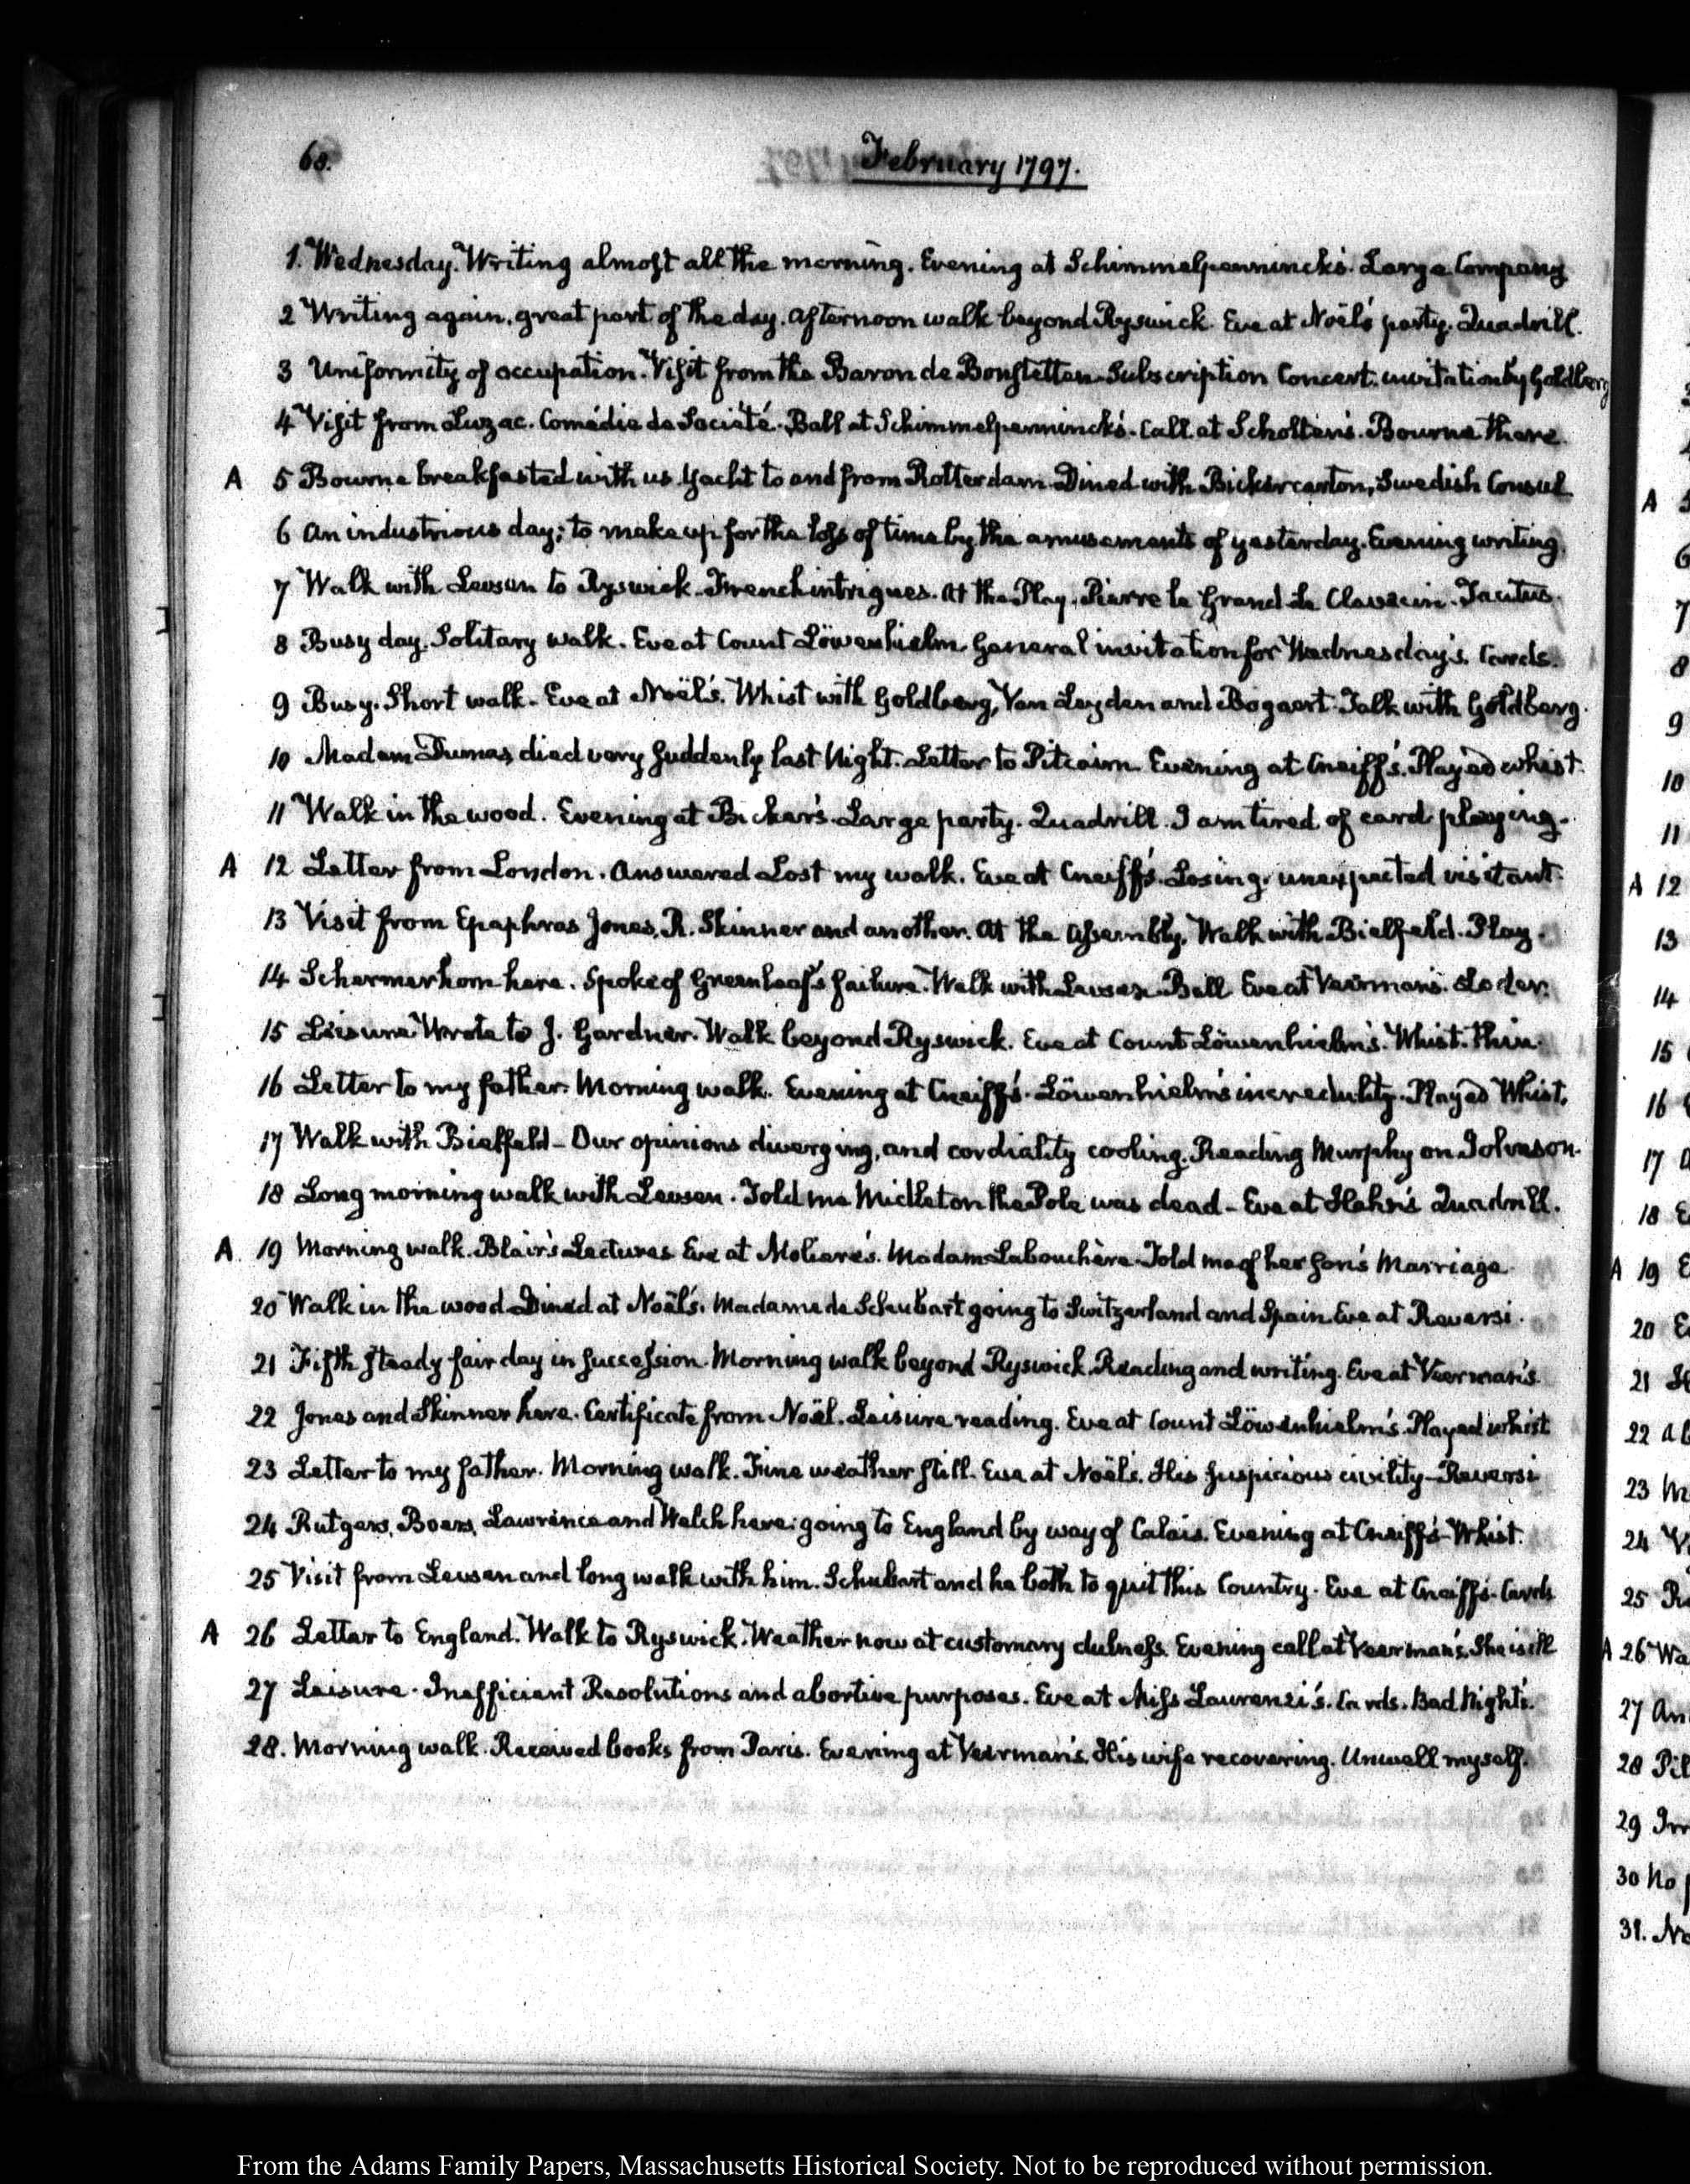 68.
February 1797.
1. Wednesday. Writing almost all the morning. Evening at Schimmelpenninck's. Large Company
2 Writing again, great part of the day. Afternoon walk beyond Ryswick. Eve at Noël's party. Quadrill.
3 Uniformity of occupation. Visit from the Baron de Bonstetten. Subscription Concert. invitation by Goldberg
4 Visit from Luzac. Comédie de Société. Ball at Schimmelpenninck's. Call at Scholten's. Bourne there.
A 5 Bourne breakfasted with us. Yacht to and from Rotterdam. Dined with Bickercarton, Swedish Consul
6 An industrious day; to make up for the loss of time by the amusements of yesterday. Evening writing.
7 Walk with Levsen to Ryswick. French intrigues. At the Play. Pierre le Grand. Le Clavecin. Tacitus.
8 Busy day. Solitary walk. Eve at Count Löwenhielm. General invitation for Wednesday's. Cards.
9 Busy. Short walk. Eve at Noël's. Whist with Goldberg, Van Leyden and Bogaert. Talk with Goldberg.
10 Madam Dumas died very suddenly last Night. Letter to Pitcairn. Evening at Cneiff's. Played whist.
11 Walk in the wood. Evening at Bicker's. Large party. Quadrill. I am tired of card playing.
A 12 Letter from London. Answered. Lost my walk. Eve at Cneiff's. Losing. unexpected visitant.
13 Visit from Epaphras Jones, R. Skinner and another. At the Assembly. Walk with Bielfeld. Play.
14 Schermerhorn here. Spoke of Greenleaf's failure. Walk with Levsen. Ball Eve at Veerman's. Loder.
15 Leisure. Wrote to J. Gardner. Walk beyond Ryswick. Eve at Count Löwenhielm's. Whist. Thin.
16 Letter to my father. Morning walk. Evening at Cneiff's. Löwenhielm's incredulity. Played Whist.
17 Walk with Bielfeld – Our opinions diverging, and cordiality cooling. Reading Murphy on Johnson.
18 Long morning walk with Levsen. Told me Midleton the Pole was dead – Eve at Hahn's Quadrill.
A. 19 Morning walk. Blair's Lectures. Eve at Moliere's. Madam Labouchère. Told me of her son's Marriage.
20 Walk in the wood. Dined at Noël's. Madame de Schubart going to Switzerland and Spain. Eve at Reversi.
21 Fifth steady fair day in succession. Morning walk beyond Ryswick. Reading and writing. Eve at Veerman's.
22 Jones and Skinner here. Certificate from Noël. Leisure reading. Eve at Count Löwenhielm's. Played whist
23 Letter to my father. Morning walk. Fine weather still. Eve at Noël's. His suspicious civility – Reversi
24 Rutgers, Boers, Lawrence and Welch here: going to England by way of Calais. Evening at Cneiff's – Whist.
25 Visit from Levsen and long walk with him. Schubart and he both to quit this Country. Eve at Cneiff's. Cards
A 26 Letter to England. Walk to Ryswick. Weather now at customary dulness. Evening call at Veerman's. She is ill
27 Leisure. Inefficient Resolutions and abortive purposes. Eve at Miss Laurenzi's. Cards. Bad Nights.
28. Morning walk. Received books from Paris. Evening at Veerman's. His wife recovering. Unwell myself.
A
6
7
8
9
10
11
A 12
13
14
15
16
17
18
A 19
20
21
22
23
24
25
A 26
27 An
28
29
30 No
31.
From the Adams Family Papers, Massachusetts Historical Society. Not to be reproduced without permission.